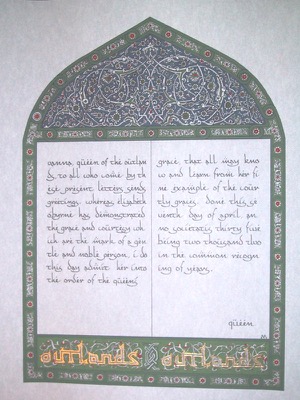 oanna, queen of the outlan
ds to all who come by th
ese present letters sends
greetings. whereas elizabeth
aborne has demonstrated
the grace and courtesy wh
ich are the mark of a gen
tle and noble person, i do
this day admit her into
the order of the queens
grace, that all may kno
w and learn from her fi
ne example of the cour
tly graces. done this se
venth day of april, an
no societatis thirty five
being two thousand two
in the common recogn
ing of years.
queen
outlands outlands